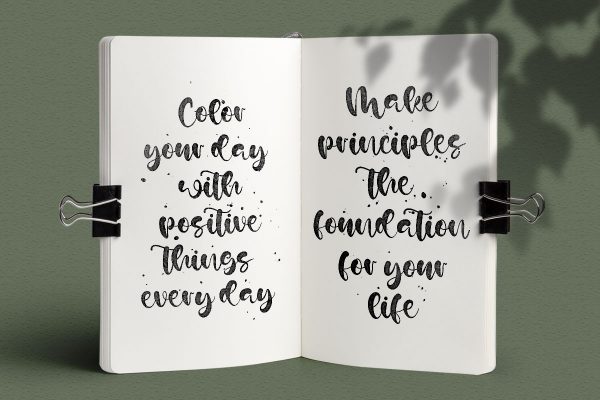 Color
your day
with
positive
things
every day
Make
principles
the
foundation
for your
life